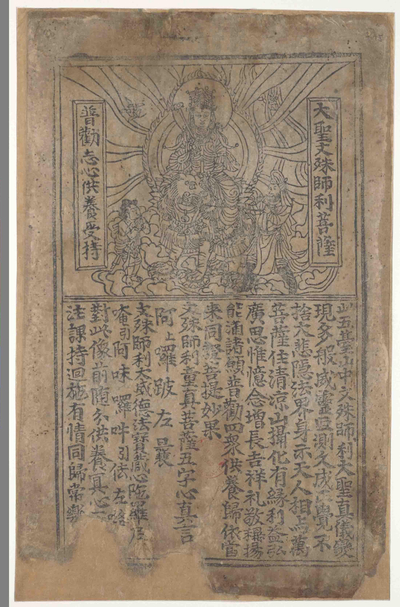 大聖文殊師利菩薩
普勸志心供養受持
此五臺山中文殊師利大聖真儀變
現多般威靈叵測久成正覺不
捨大悲隱法界身示天人相与萬
菩薩住清凉山攝化有緣利益弘
廣思惟憶念增長吉祥礼敬稱揚
能滿諸願普勸四衆供養歸依當
來同證菩提妙果
文殊師利童真菩薩五字心真言
阿上囉跛左曩
文殊師利大威德法寶藏心陁羅尼
唵引阿味囉吽引佉左咯
對此像前隨分供養冥心一
法課持迴施有情同歸常樂